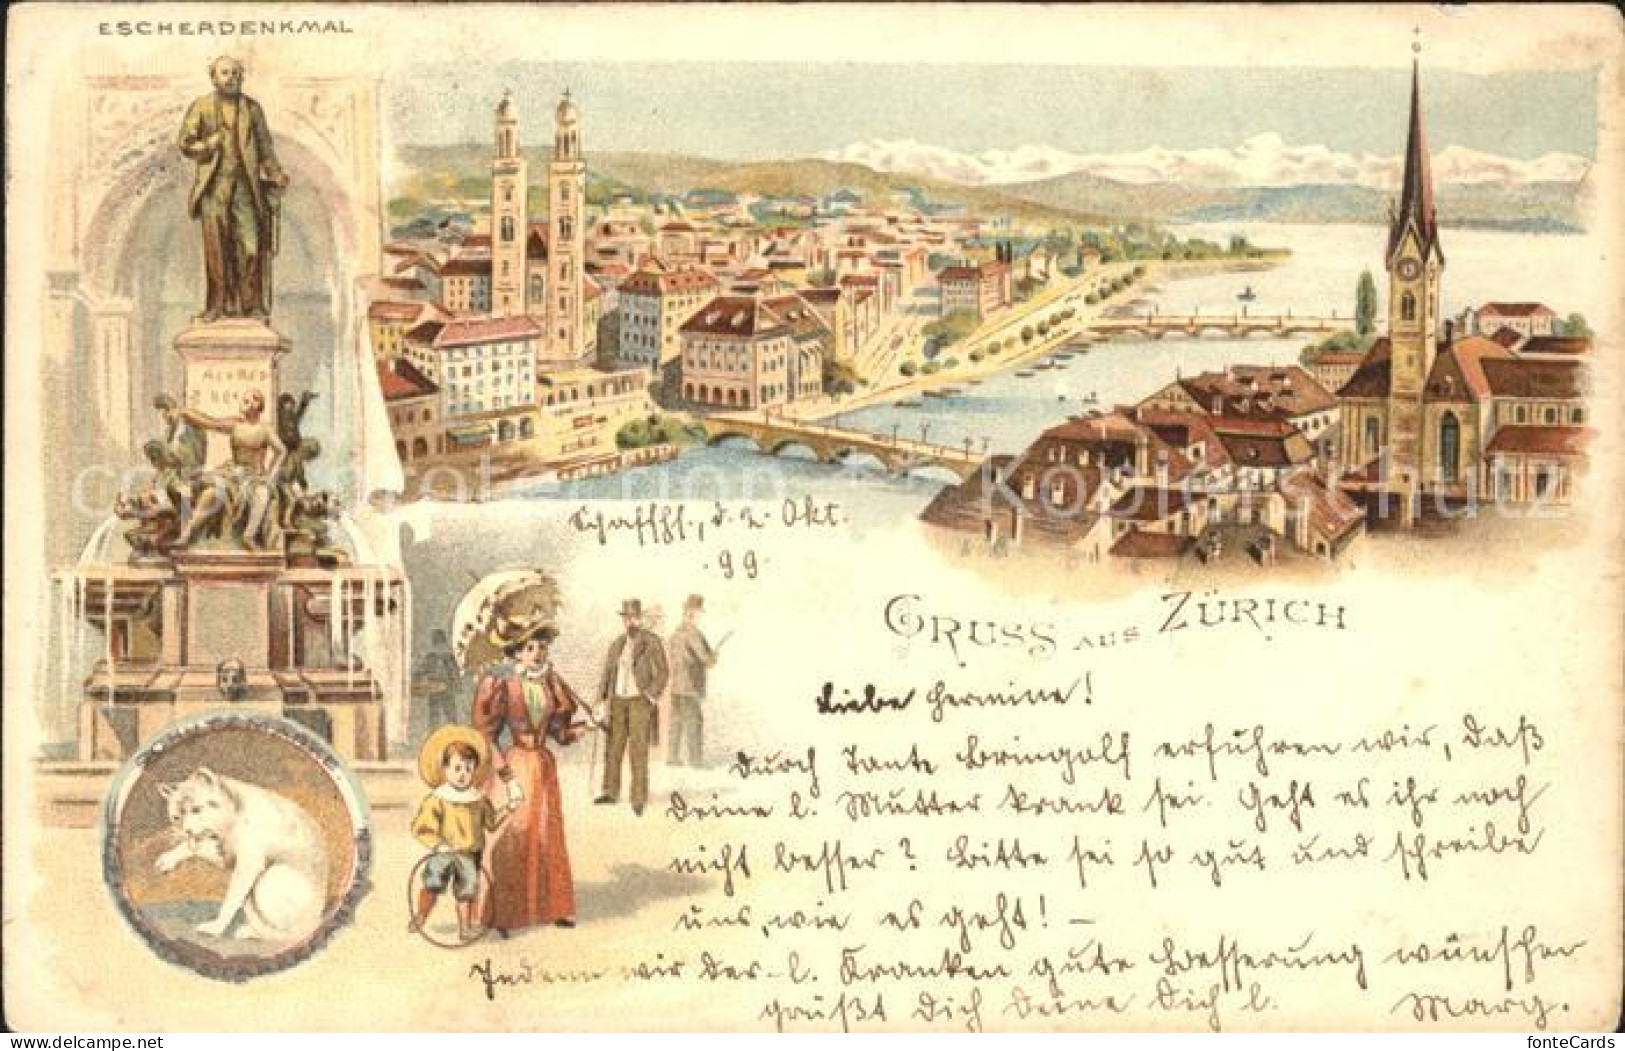 ESCHERDENKMAL
ALFRED
Schaffhs., d. 2. Okt.
99.
GRUSS AUS ZÜRICH
Liebe Hermine!
Durch Tante Bringolf erfuhren wir, daß
Deine l. Mutter krank sei. Geht es ihr noch
nicht besser? Bitte sei so gut und schreibe
uns, wie es geht! –
Indem wir der l. Kranken gute Besserung wünschen
grüßt Dich Deine Dich l. Marg.
fonteCards